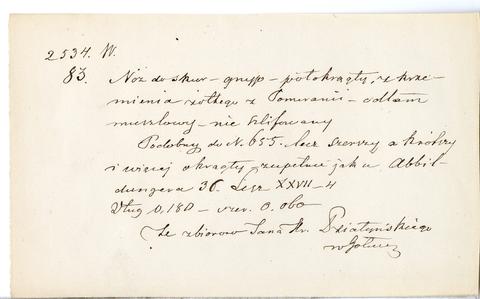 2534. W.
83. Nóż do skur – grupp – połokrągły, z krze-
mienia żółtego z Pomeranii – odłam
muszlowy – nie szlifowany
Podobny do N. 655. lecz szerszy a krótszy
i więcej okrągły, zupełnie jak u Abbil-
dungera 36. Lesz XXVII – 4
Dług 0,180 – szer. 0.060
Ze zbiorow Jana Hr. Działyńskiego